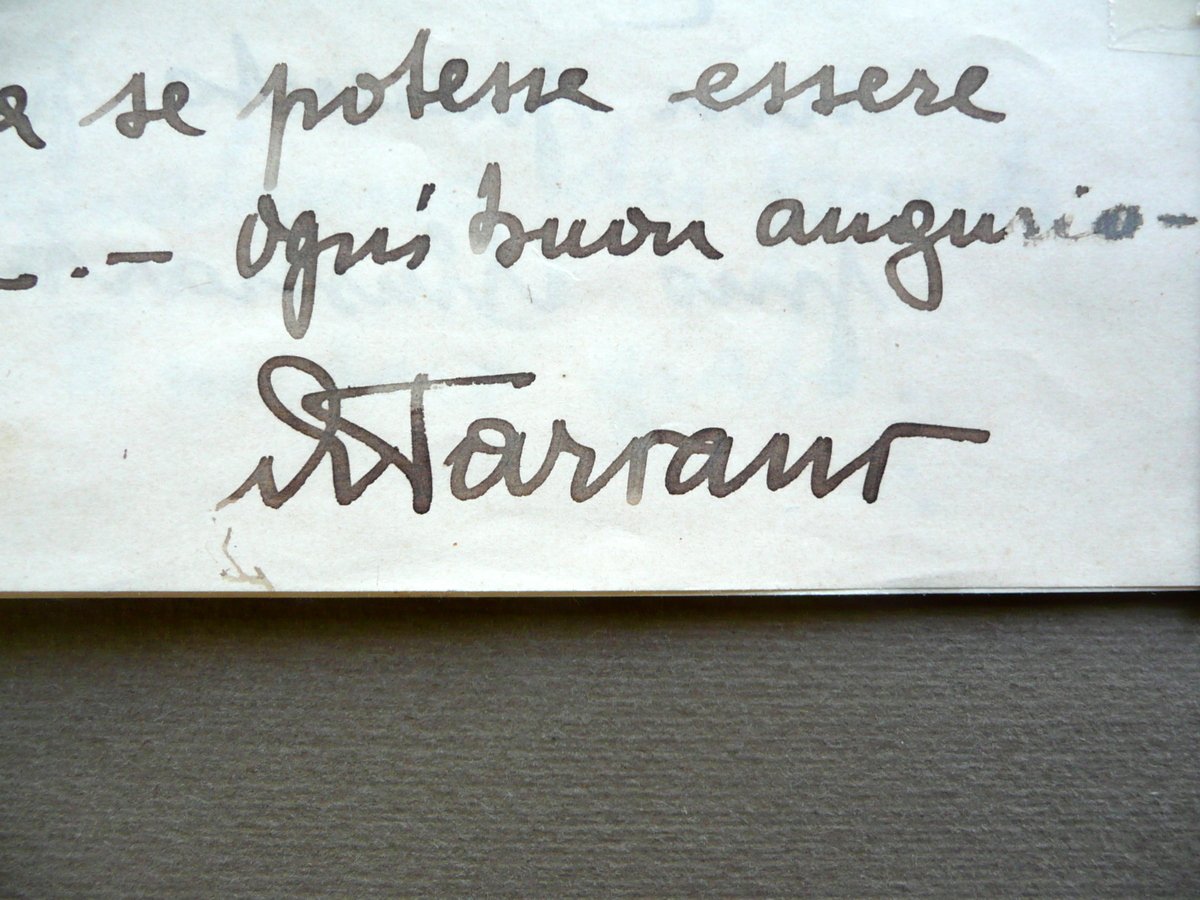 a se potesse essere
. – Ogni buon augurio –
Tarrant